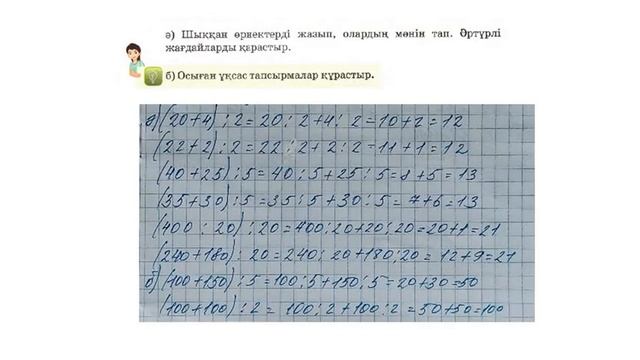 ә) Шыққан өрнектерді жазып, олардың мәнін тап. Әртүрлі
жағдайларды қарастыр.
б) Осыған ұқсас тапсырмалар құрастыр.
ә) (20+4) : 2 = 20 : 2 + 4 : 2 = 10 + 2 = 12
(22+2) : 2 = 22 : 2 + 2 : 2 = 11 + 1 = 12
(40+25) : 5 = 40 : 5 + 25 : 5 = 8 + 5 = 13
(35+30) : 5 = 35 : 5 + 30 : 5 = 7 + 6 = 13
(400 : 20) : 20 = 400 : 20 + 20 : 20 = 20 + 1 = 21
(240+180) : 20 = 240 : 20 + 180 : 20 = 12 + 9 = 21
б) (100+150) : 5 = 100 : 5 + 150 : 5 = 20 + 30 = 50
(100+100) : 2 = 100 : 2 + 100 : 2 = 50 + 50 = 100